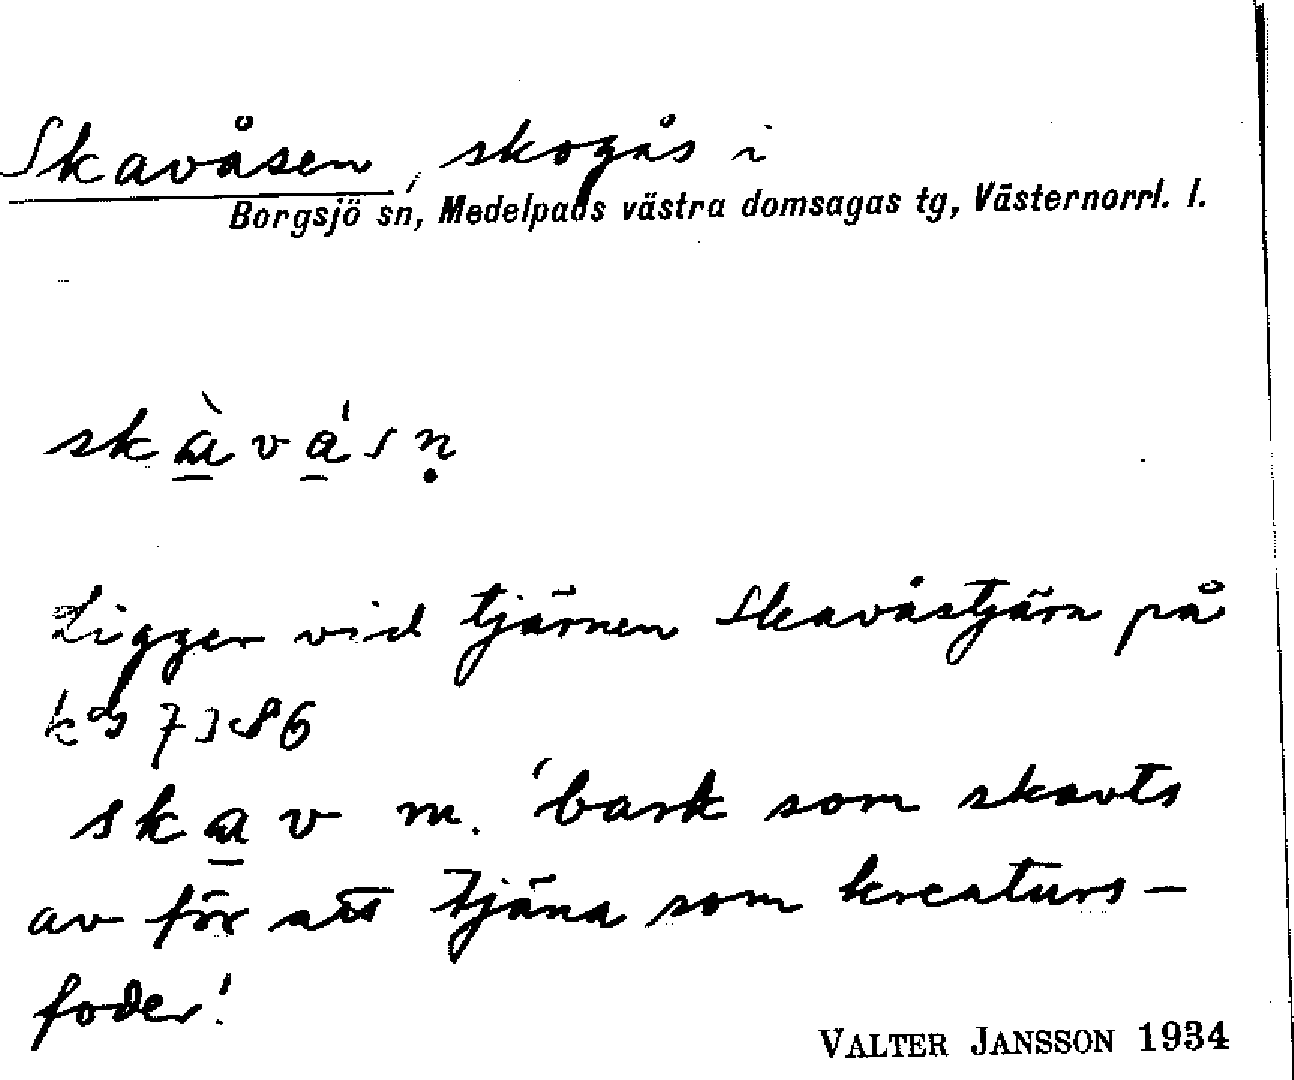 Skavåsen, skogås i
Borgsjö sn, Medelpads västra domsagas tg, Västernorrl. l.
skàvásṇ
Ligger vid tjärnen Skavåstjärn på
7386
skav m. 'bark som skavts
av för att tjäna som kreaturs-
foder'.
VALTER JANSSON 1934